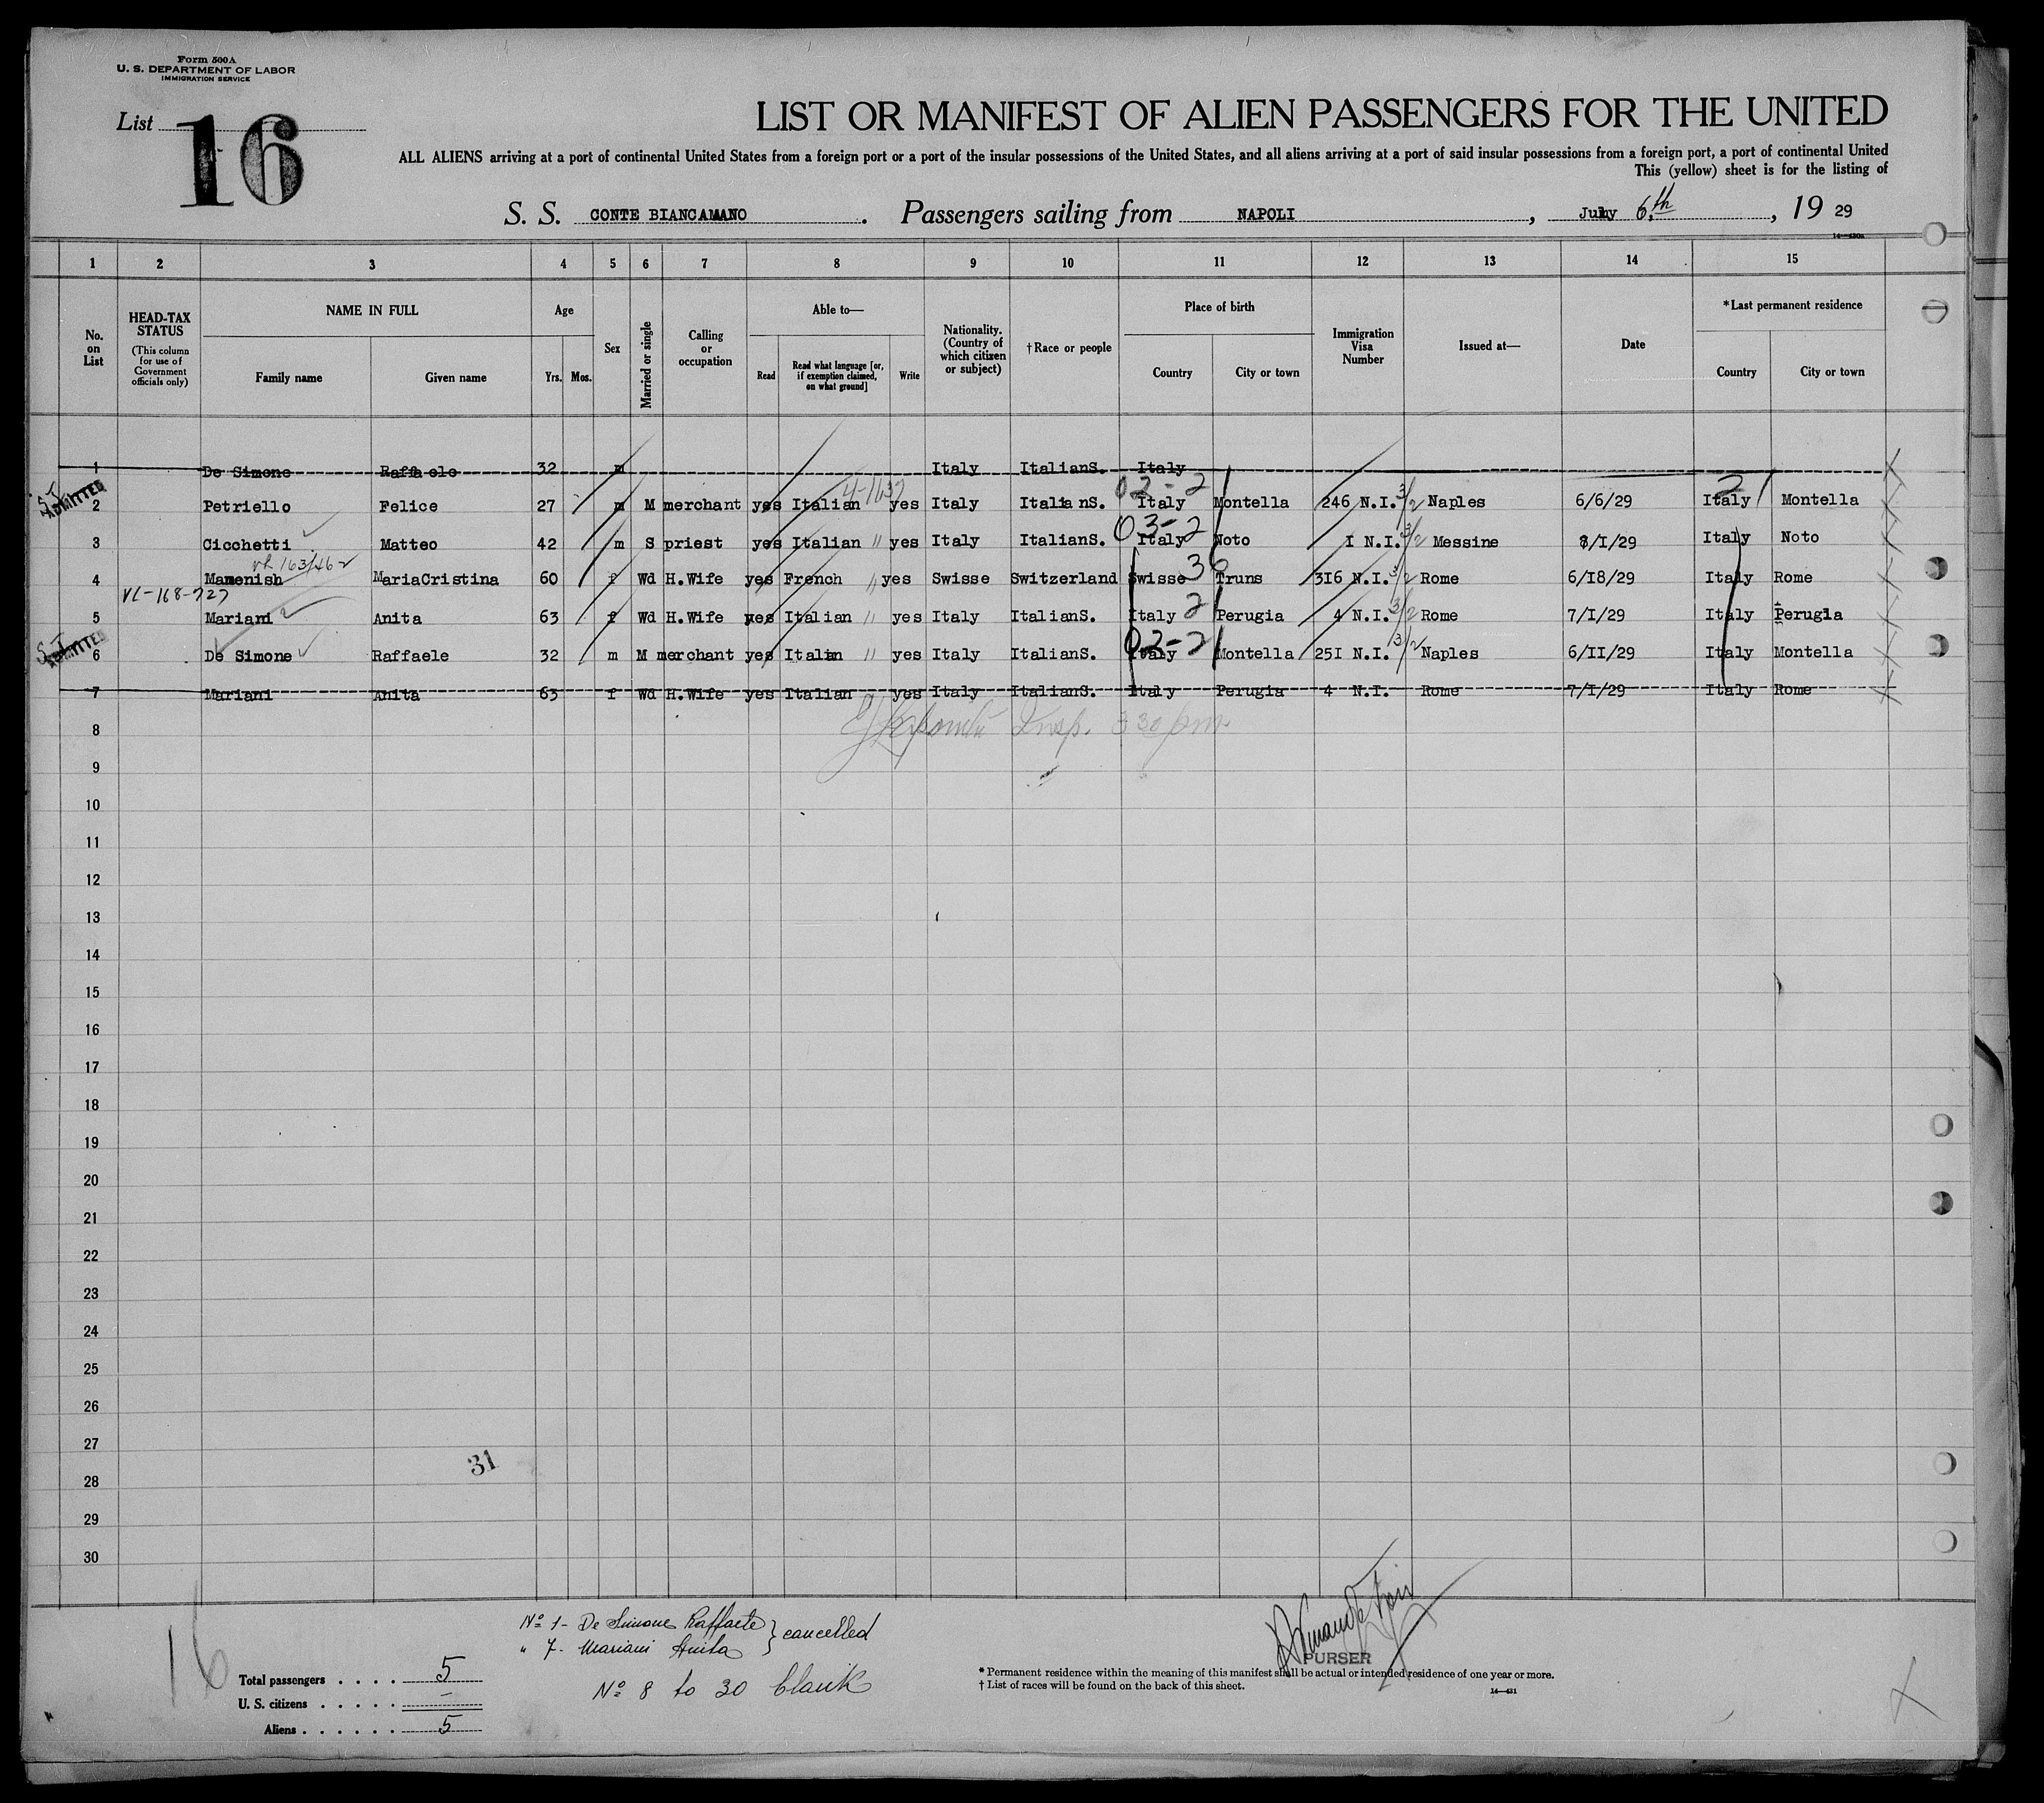 Form 500A
U. S. DEPARTMENT OF LABOR
IMMIGRATION SERVICE
List 16
LIST OR MANIFEST OF ALIEN PASSENGERS FOR THE UNITED
ALL ALIENS arriving at a port of continental United States from a foreign port or a port of the insular possessions of the United States, and all aliens arriving at a port of said insular possessions from a foreign port, a port of continental United
This (yellow) sheet is for the listing of
S. S. CONTE BIANCAMANO. Passengers sailing from NAPOLI, July 6th, 19 29
14—430a
1 2 3 4 5 6 7 8 9 10 11 12 13 14 15
No. on List
HEAD-TAX STATUS
(This column for use of Government officials only)
NAME IN FULL
Family name Given name
Age
Yrs. Mos.
Sex
Married or single
Calling or occupation
Able to—
Read Read what language [or, if exemption claimed, on what ground] Write
Nationality. (Country of which citizen or subject)
†Race or people
Place of birth
Country City or town
Immigration Visa Number
Issued at—
Date
*Last permanent residence
Country City or town
1 De Simone Raffaele 32 m Italy ItalianS. Italy
4-1637 02-2 2
SI ADMITTED
2 Petriello Felice 27 m M merchant yes Italian yes Italy ItalianS. Italy Montella 246 N.I. 3/2 Naples 6/6/29 Italy Montella
03-2
3 Cicchetti Matteo 42 m S priest yes Italian " yes Italy ItalianS. Italy Noto I N.I. 3/2 Messine 8/I/29 Italy Noto
vh 163/462
4 Mamenish MariaCristina 60 f Wd H.Wife yes French " yes Swisse Switzerland Swisse 36 Truns 316 N.I. 3/2 Rome 6/I8/29 Italy Rome
VL-168-727
5 Mariani Anita 63 f Wd H.Wife yes Italian " yes Italy ItalianS. Italy 2 Perugia 4 N.I. 3/2 Rome 7/I/29 Italy Perugia
SI ADMITTED
02-2
6 De Simone Raffaele 32 m M merchant yes Italian " yes Italy ItalianS. Italy Montella 25I N.I. 3/2 Naples 6/II/29 Italy Montella
7 Mariani Anita 63 f Wd H.Wife yes Italian yes Italy ItalianS. Italy Perugia 4 N.I. Rome 7/I/29 Italy Rome
8 Insp. 3 30 pm
9
10
11
12
13
14
15
16
17
18
19
20
21
22
23
24
25
26
27
31
28
29
30
16
Nº 1- De Simone Raffaele } cancelled
" 7- Mariani Anita
Nº 8 to 30 blank
Total passengers . . . . 5
U. S. citizens . . . . . –
Aliens . . . . . . 5
PURSER
* Permanent residence within the meaning of this manifest shall be actual or intended residence of one year or more.
† List of races will be found on the back of this sheet.
14—431